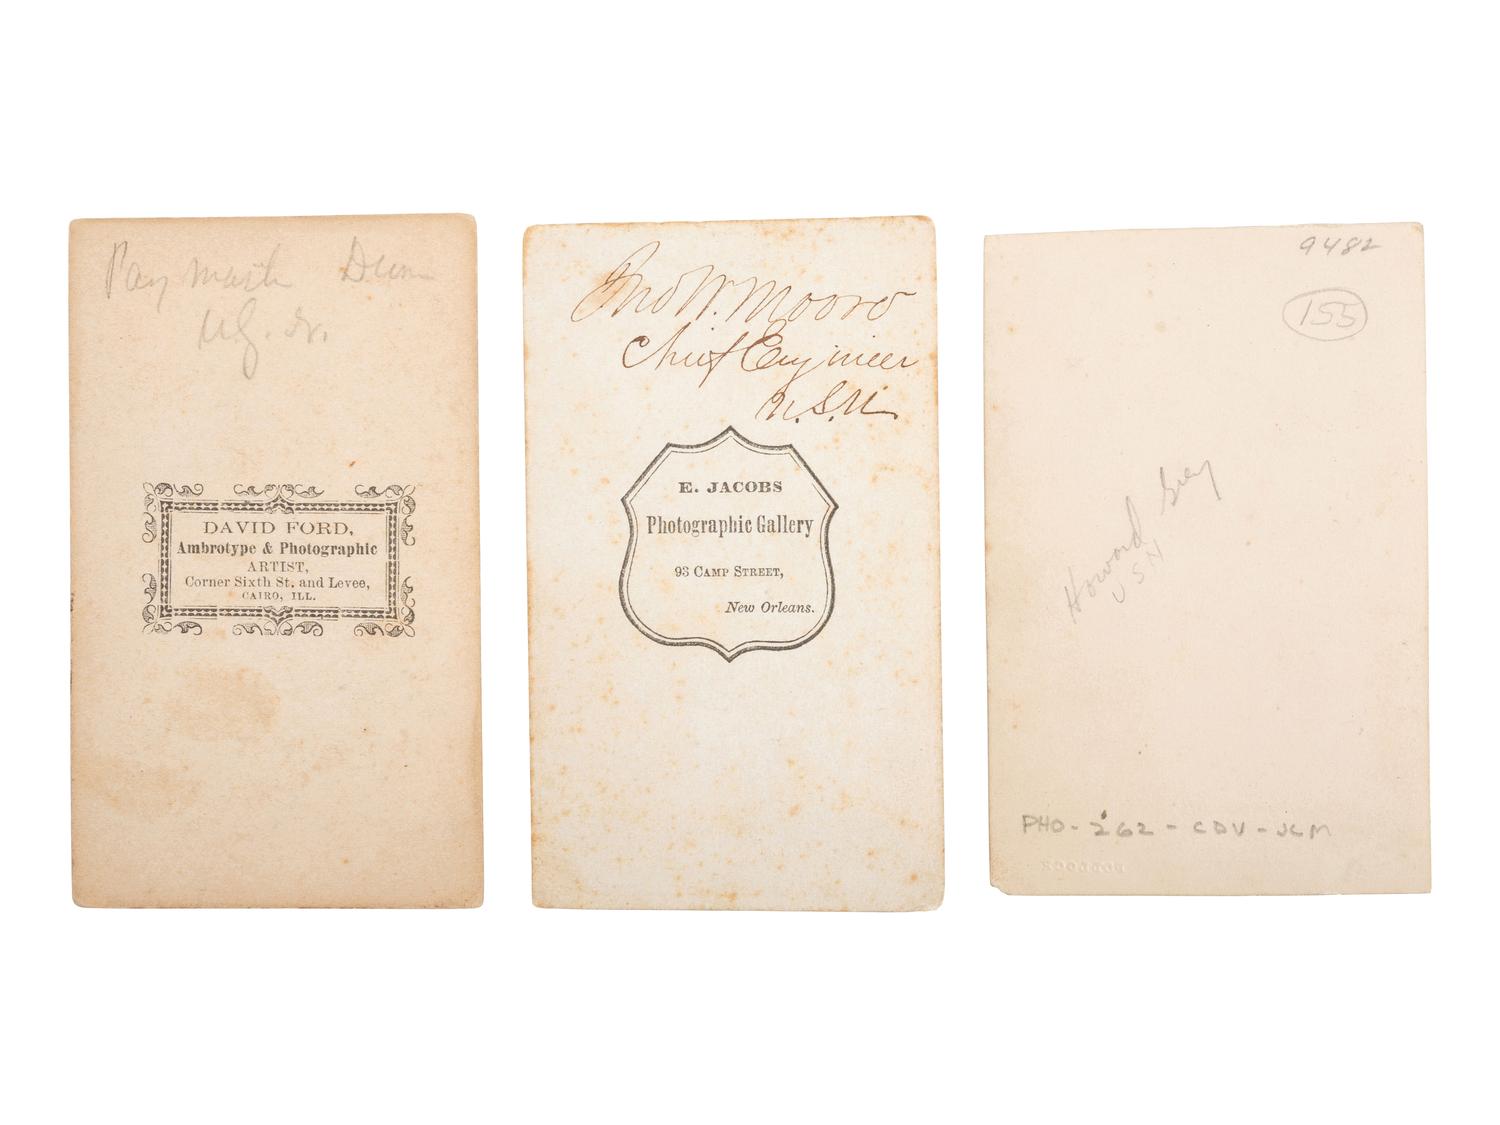 Pay Mast Dunn
DAVID FORD,
Ambrotype & Photographic
ARTIST,
Corner Sixth St. and Levee,
CAIRO, ILL.
Jno W. Moore
Chief Engineer
U.S.N.
E. JACOBS
Photographic Gallery
93 CAMP STREET,
New Orleans.
9482
155
Howard Grey
USN
PHO-262-CDV-JLM
BULLOCK